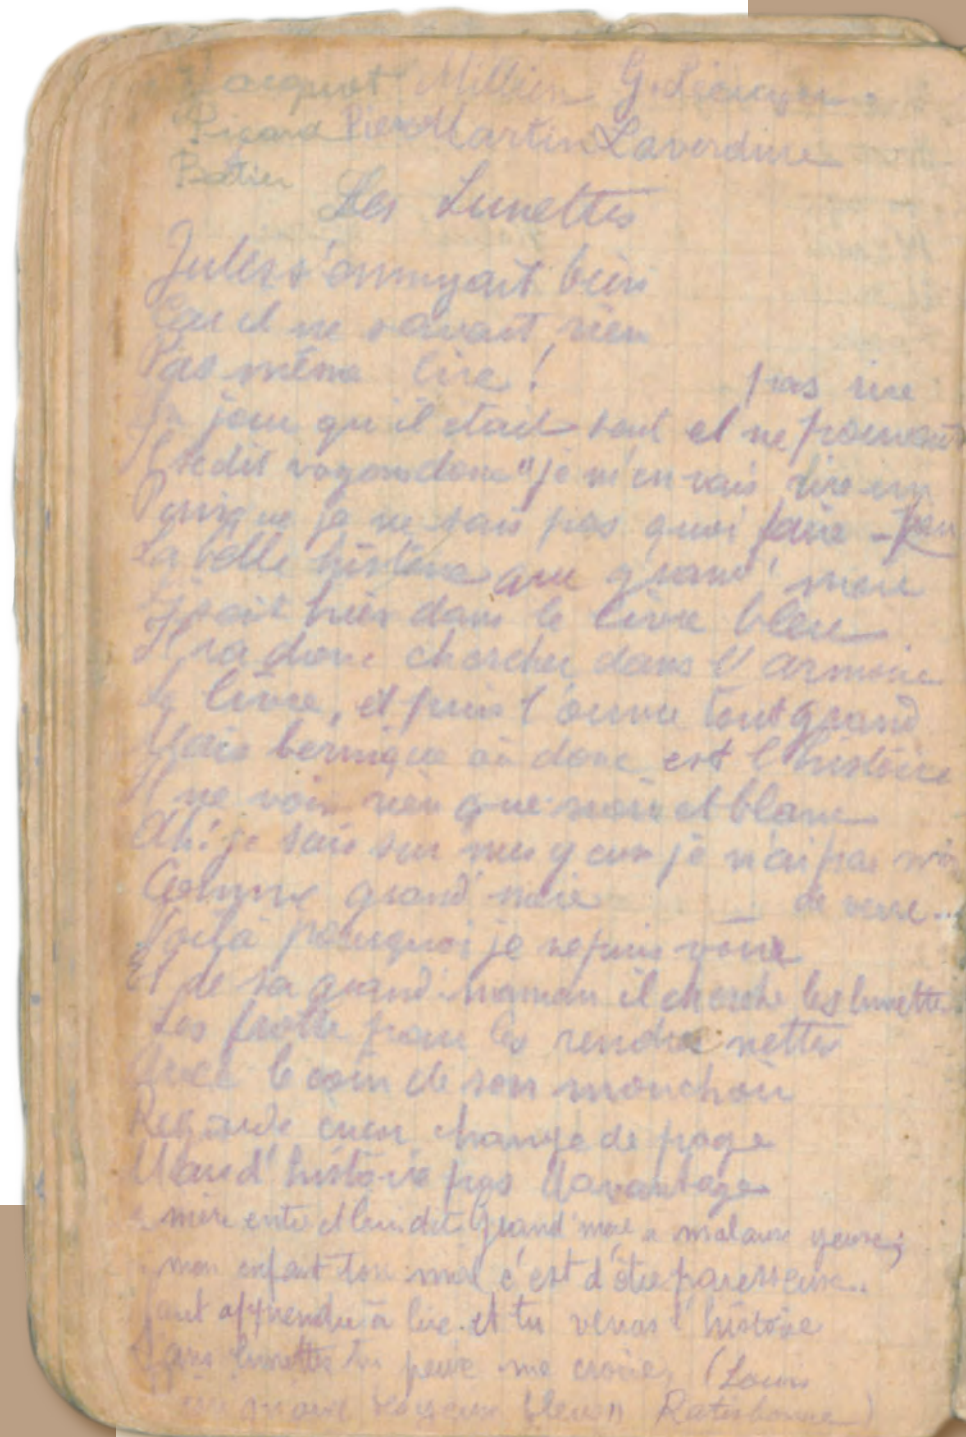 Jacquot Millien G.
Picard Pierre Martin Laverdure
Batier
Les Lunettes
Jules s'ennuyait bien
Car il ne savait rien
Pas même lire !
pas rire
Un jour qu'il était seul et ne pouvait
Il se dit voyons donc "je m'en vais lire un
Puisque je ne sais pas quoi faire - peu
La belle histoire que grand' mère
Lisait hier dans le livre bleu
Il va donc chercher dans l'armoire
Le livre, et puis l'ouvre tout grand
Mais bernique où donc est l'histoire
Il ne voit rien que noir et blanc
Ah! je sais sur mes yeux je n'ai pas mis
Comme grand' mère
de verre...
Voilà pourquoi je ne puis voir
Et de sa grand-maman il cherche les lunettes
Les frotte pour les rendre nettes
Avec le coin de son mouchoir
Regarde encor change de page
Mais d'histoire pas davantage
mère entre et lui dit Grand' mère a malade yeux;
mon enfant ton mal c'est d'être paresseux..
Faut apprendre à lire et tu verras l'histoire
Sans lunettes tu peux me croire, (Louis
yeux bleus" Ratisbonne)